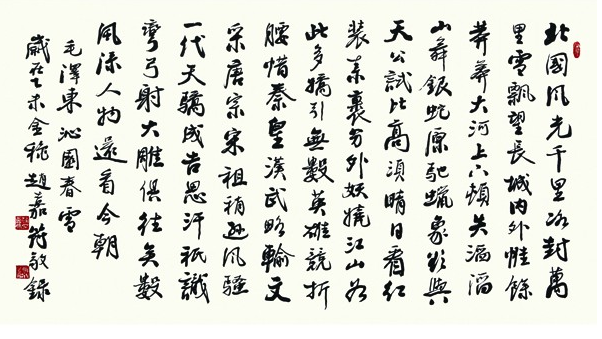 北國風光千里冰封萬
里雪飄望長城內外惟餘
莽莽大河上下頓失滔滔
山舞銀蛇原馳蠟象欲與
天公試比高須晴日看紅
裝素裹分外妖嬈江山如
此多嬌引無數英雄競折
腰惜秦皇漢武略輸文
采唐宗宋祖稍遜風騷
一代天驕成吉思汗祇識
彎弓射大雕俱往矣數
風流人物還看今朝
毛澤東沁園春雪
歲在乙未金秋趙嘉符敬錄